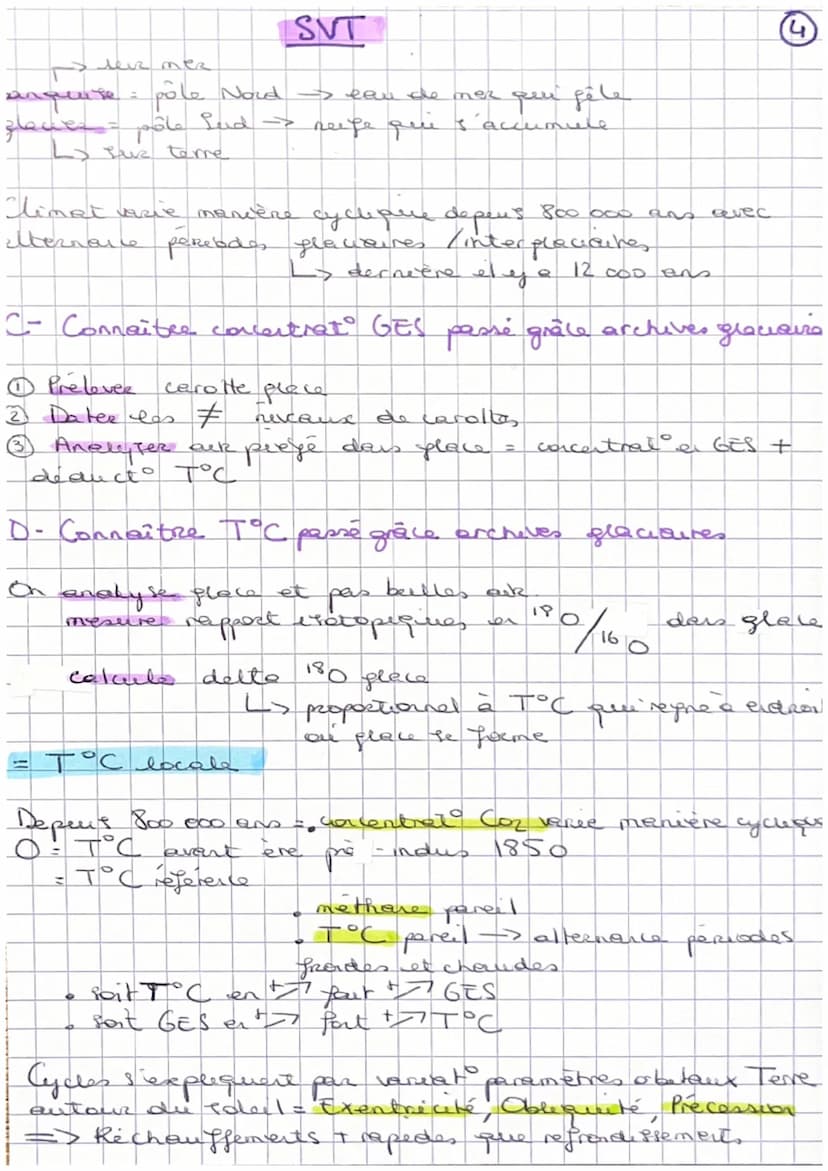 SVT
④
↱ sur mer
banquise = pôle Nord → eau de mer qui gèle
glacier = pôle Sud → neige qui s'accumule
↳ sur terre
Climat varie manière cyclique depuis 800 000 ans avec
alternance périodes glaciaires / interglaciaires
↳ dernière il y a 12 000 ans
C- Connaître concentrat° GES passé grâce archives glaciaires
① Prélever carotte glace
② Dater les ≠ niveaux de carottes
③ Analyser air piégé dans glace = concentrat° en GES +
déduct° T°C
D- Connaître T°C passé grâce archives glaciaires
On analyse glace et pas bulles air
mesure rapport isotopiques en ¹⁸O/¹⁶O dans glace
calcule delta ¹⁸O glace
↳ proportionnel à T°C qui règne à endroit
où glace se forme
= T°C locale
Depuis 800 000 ans = • concentrat° CO2 varie manière cyclique
0 = T°C avant ère pré-indus 1850
= T°C référence
• méthane pareil
• T°C pareil → alternance périodes
froides et chaudes
• soit T°C en +↗ fait +↗ GES
• soit GES en +↗ fait +↗ T°C
Cycles s'expliquent par variat° paramètres orbitaux Terre
autour du soleil = Exentricité, Obliquité, Précession
=> Réchauffements + rapides que refroidissements